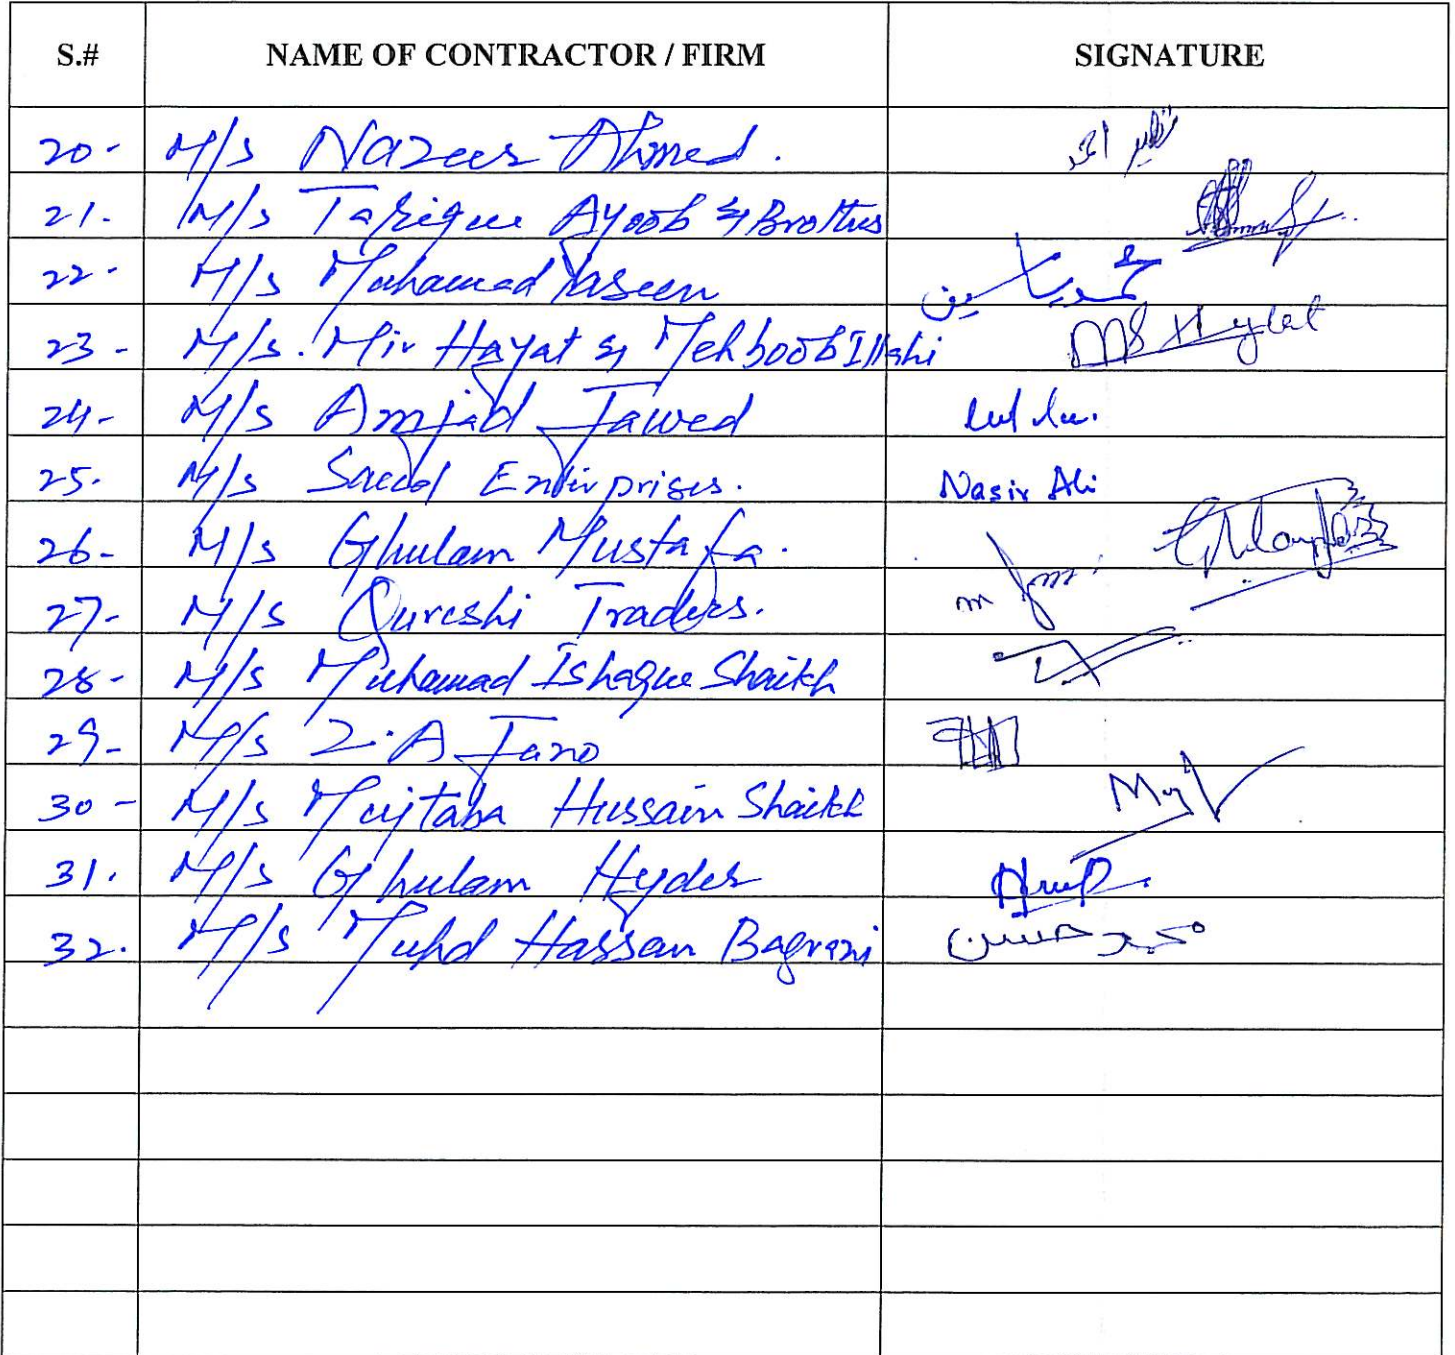 S.# NAME OF CONTRACTOR / FIRM SIGNATURE
20- M/s Nazeer Ahmed. نظیر احمد
21. M/s Tarique Ayoob & Brothers
22- M/s Muhamad Yaseen محمد یاسین
23- M/s. Mir Hayat & Mehboob Illahi
24- M/s Amjad Jawed
25. M/s Saeed Enterprises. Nasir Ali
26- M/s Ghulam Mustafa.
27- M/s Qureshi Traders.
28- M/s Muhamad Ishaque Shaikh
29- M/s Z.A Jano
30- M/s Mujtaba Hussain Shaikh
31. M/s Ghulam Hyder
32. M/s Muhd Hassan Bagrani محمد حسن